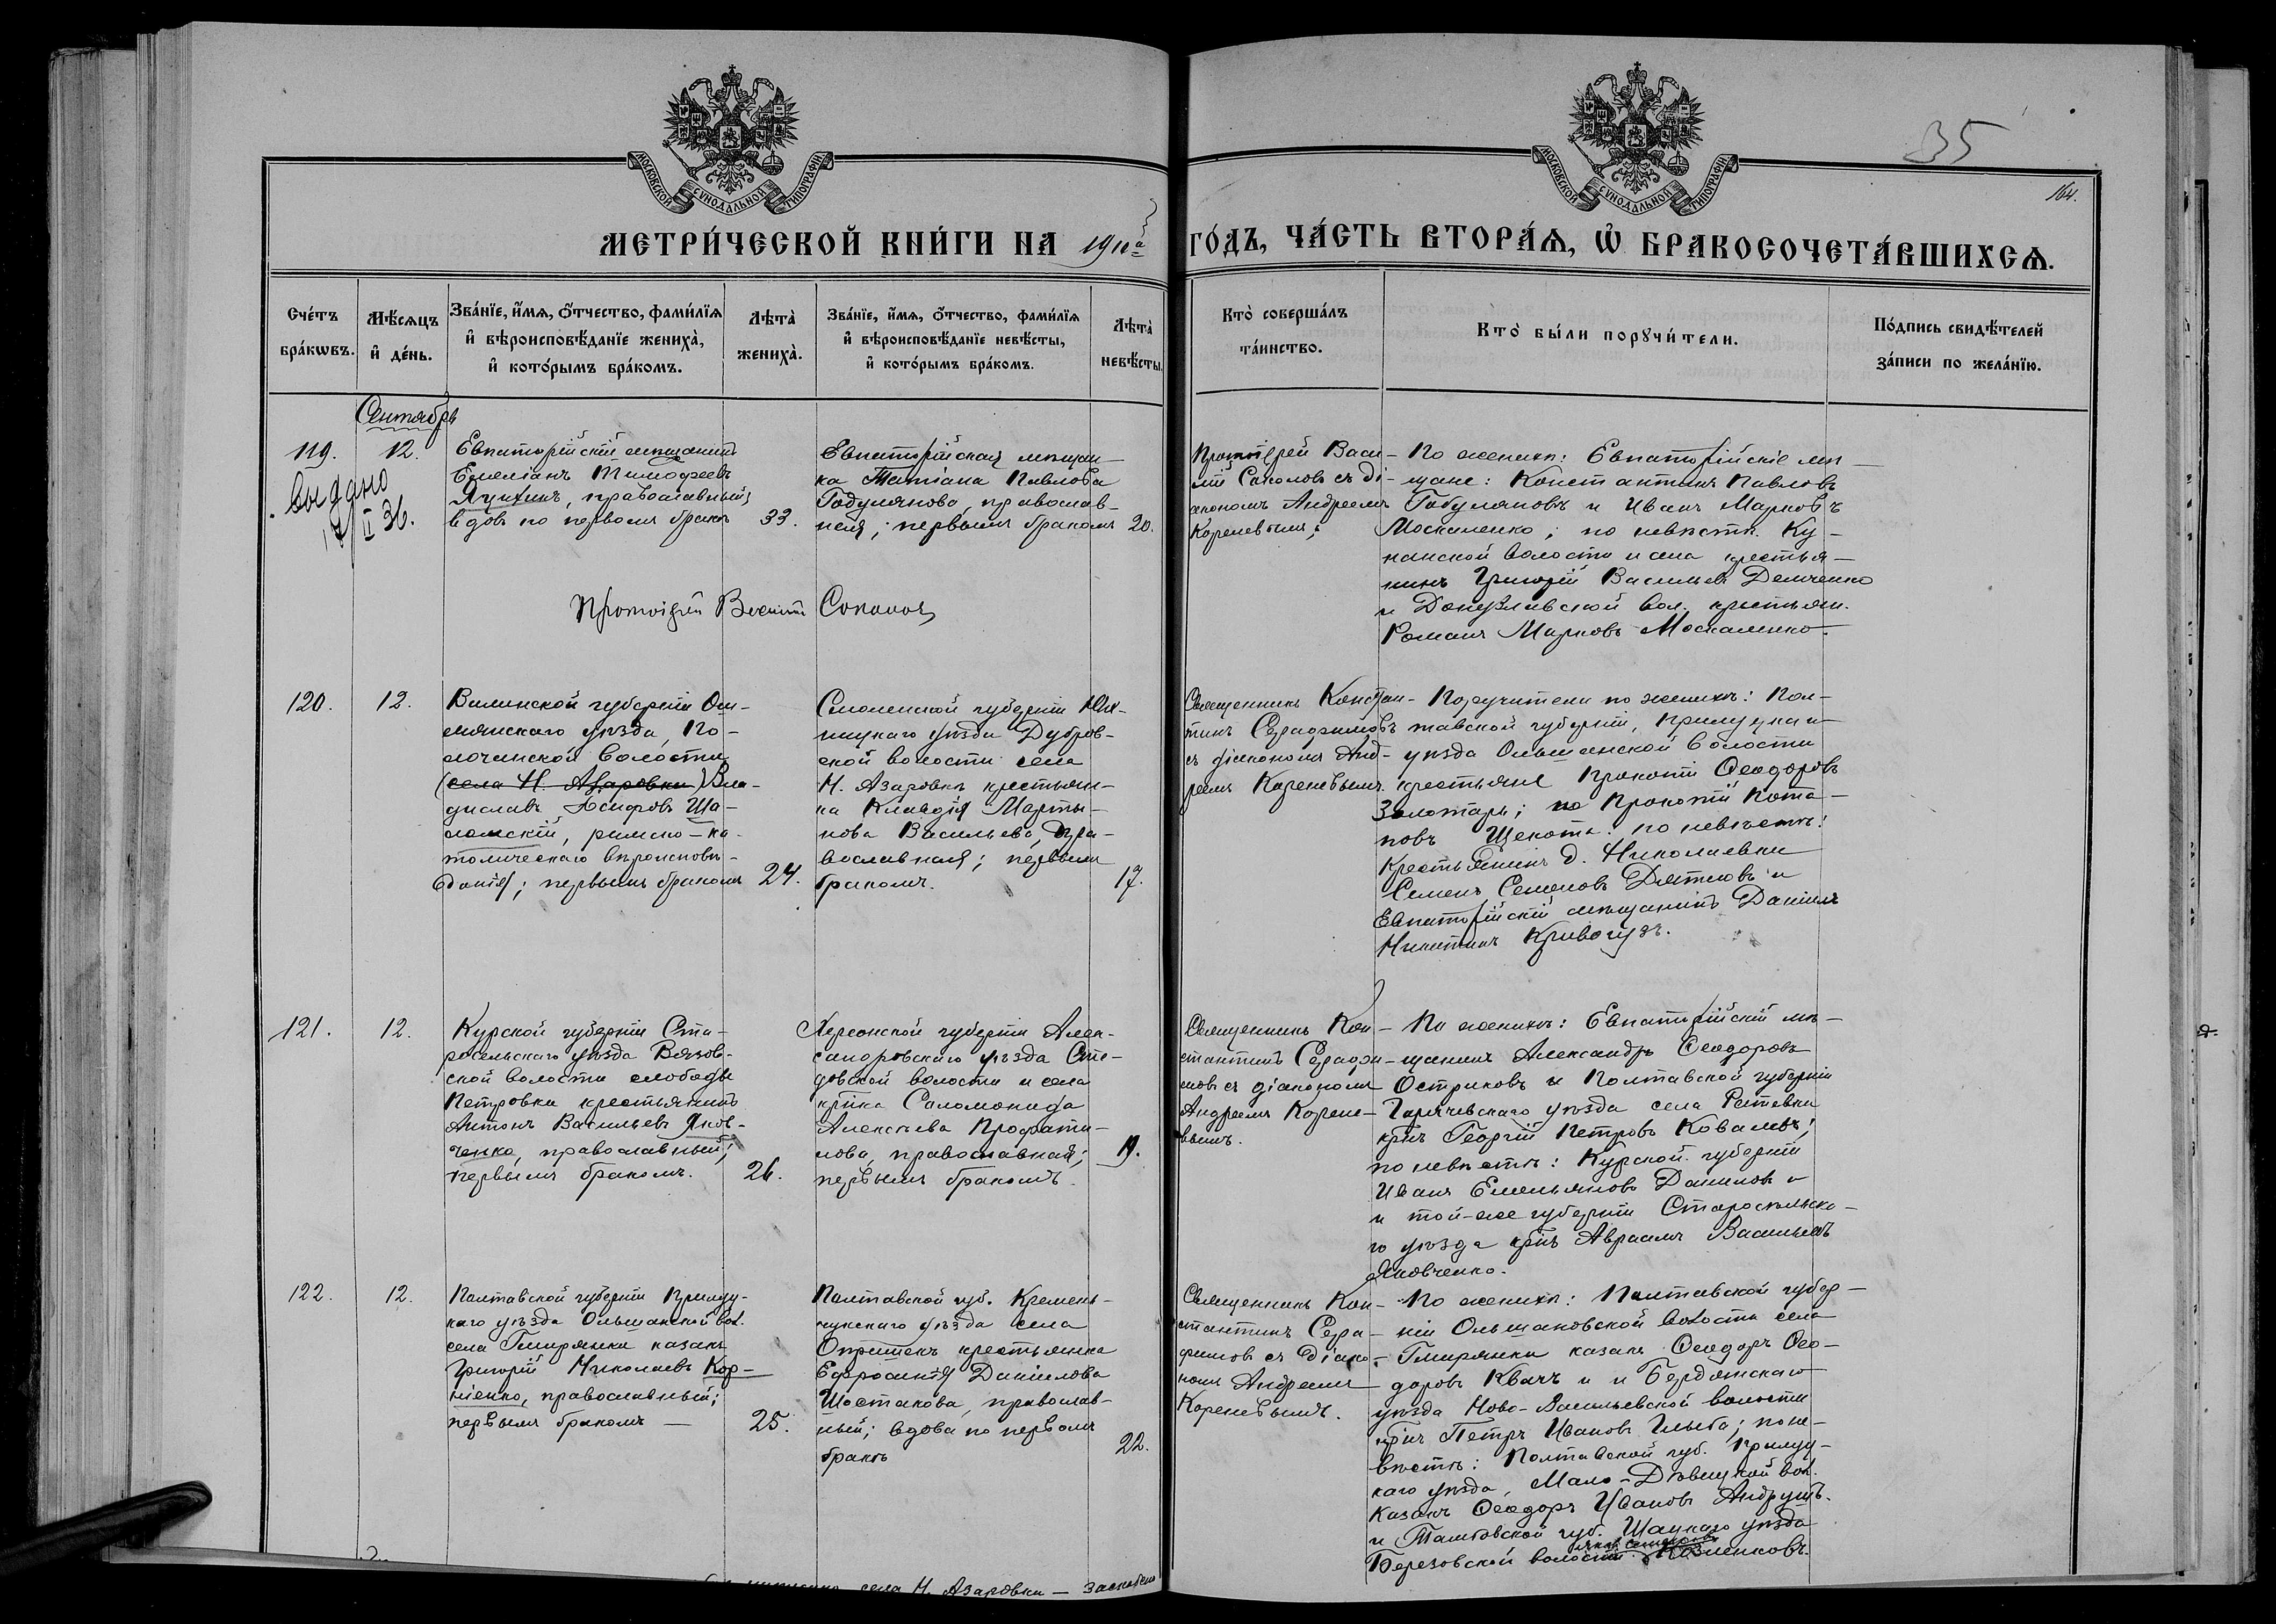 МОСКОВСКОЙ СУНОДАЛЬНОЙ ТИПОГРАФІИ
МОСКОВСКОЙ СУНОДАЛЬНОЙ ТИПОГРАФІИ
35
164.
МЕТРИ́ЧЕСКОЙ КНИ́ГИ НА 1910й ГО́ДЪ, ЧА́СТЬ ВТОРА́Ѧ, Ѡ҆ БРАКОСОЧЕТА́ВШИХСѦ.
Сче́тъ
бра́кѡвъ.
Мѣ́сѧцъ
и҆ де́нь.
Зва́нїе, и҆́мѧ, ѻ҆́тчество, фами́лїѧ
и҆ вѣроисповѣ́данїе жениха̀,
и҆ кото́рымъ бра́комъ.
Лѣта̀
жениха̀.
Зва́нїе, и҆́мѧ, ѻ҆́тчество, фами́лїѧ
и҆ вѣроисповѣ́данїе невѣ́сты,
и҆ кото́рымъ бра́комъ.
Лѣта̀
невѣ́сты.
Кто̀ соверша́лъ
та́инство.
Кто̀ бы́ли порꙋчи́тели.
По́дпись свидѣ́телей
за́писи по жела́нїю.
Сентябрь
119.
Выдано
II 36.
12.
Евпаторійскій мѣщанинъ
Емеліанъ Тимофеевъ
православный;
вдовъ по первомъ бракѣ
33.
Евпаторійская мѣщан-
ка Татіана Павлова
Годулянова, православ-
ная; первымъ бракомъ
20.
Протоіерей Васи-
лій Соколовъ съ ді-
акономъ Андреемъ
Кореневымъ;
По женихѣ: Евпаторійскіе мѣ-
щане: Константинъ Павловъ
Годуляновъ и Иванъ Марковъ
Москаленко; по невѣстѣ: Ку-
нанской волости и села крестья-
нинъ Григорій Васильевъ Демченко
и Донузлавской вол. крестьян.
Романъ Марковъ Москаленко.
Протоіерей Василій Соколовъ
120.
12.
Виленской губерніи Ош-
мянскаго уѣзда, По-
лочанской волости
(села Н. Азаровки) Вла-
диславъ Іосифовъ Ша-
ломскій, римско-ка-
толическаго вѣроисповѣ-
данія; первымъ бракомъ
24.
Смоленской губерніи Юх-
ницкаго уѣзда Дубров-
ской волости села
Н. Азаровки крестьян-
ка Клавдія Марты-
нова Васильева, пра-
вославная; первымъ
бракомъ.
17.
Священникъ Констан-
тинъ Серафимовъ
съ діакономъ Анд-
реемъ Кореневымъ.
Поручители по женихѣ: Пол-
тавской губерніи, Прилуцкаго
уѣзда Ольшанской волости
крестьяне Прокопій Ѳеодоровъ
Золотарь; Прокопій Пота-
повъ Щекота: по невѣстѣ:
Крестьянинъ д. Николаевки
Семенъ Семеновъ Дятловъ и
Евпаторійскій мѣщанинъ Даніилъ
Никитинъ Кривогузъ.
121.
12.
Курской губерніи Ста-
росельскаго уѣзда Вязов-
ской волости слободы
Петровки крестьянинъ
Антонъ Васильевъ Яков-
ченко, православный;
первымъ бракомъ.
26.
Херсонской губерніи Алек-
сандровскаго уѣзда
волости и села
кр҃нка Соломонида
Алексѣева Профати-
лова, православная;
первымъ бракомъ.
19.
Священникъ Кон-
стантинъ Серафи-
мовъ съ діакономъ
Андреемъ Корене-
вымъ.
По женихѣ: Евпаторійскій мѣ-
щанинъ Александръ Ѳеодоровъ
Остриковъ и Полтавской губерніи
Гадячевскаго уѣзда села
кр҃нъ Георгій Петровъ Ковалевъ;
по невѣстѣ: Курской губерніи
Иванъ Емельяновъ Даниловъ и
и той-же губерніи Староскольска-
го уѣзда кр҃нъ Авраамъ Васильевъ
Яковченко.
122.
12.
Полтавской губерніи Прилуц-
каго уѣзда Ольшанской вол.
села Гмирянки казакъ
Григорій Николаевъ Кор-
ніенко, православный;
первымъ бракомъ —
25.
Полтавской губ. Кремен-
чукскаго уѣзда села
крестьянка
Ефросинія Даніилова
Шостакова, православ-
ный; вдова по первомъ
бракѣ
22.
Священникъ Кон-
стантинъ Сера-
фимовъ съ діако-
номъ Андреемъ
Кореневымъ.
По женихѣ: Полтавской губер-
ніи Ольшановской волости села
Гмирянки казакъ Ѳеодоръ Ѳео-
доровъ Квачъ и и Бердянскаго
уѣзда Ново-Васильевской волости
кр҃нъ Петръ Ивановъ Глыба; по не-
вѣстѣ: Полтавской губ. Прилуц-
каго уѣзда, Мало-Дѣвицкой вол.
казакъ Ѳеодоръ Ивановъ Андрущъ.
и Тамбовской губ. Шацкаго уѣзда
Березовской волости
села Н. Азаровки —